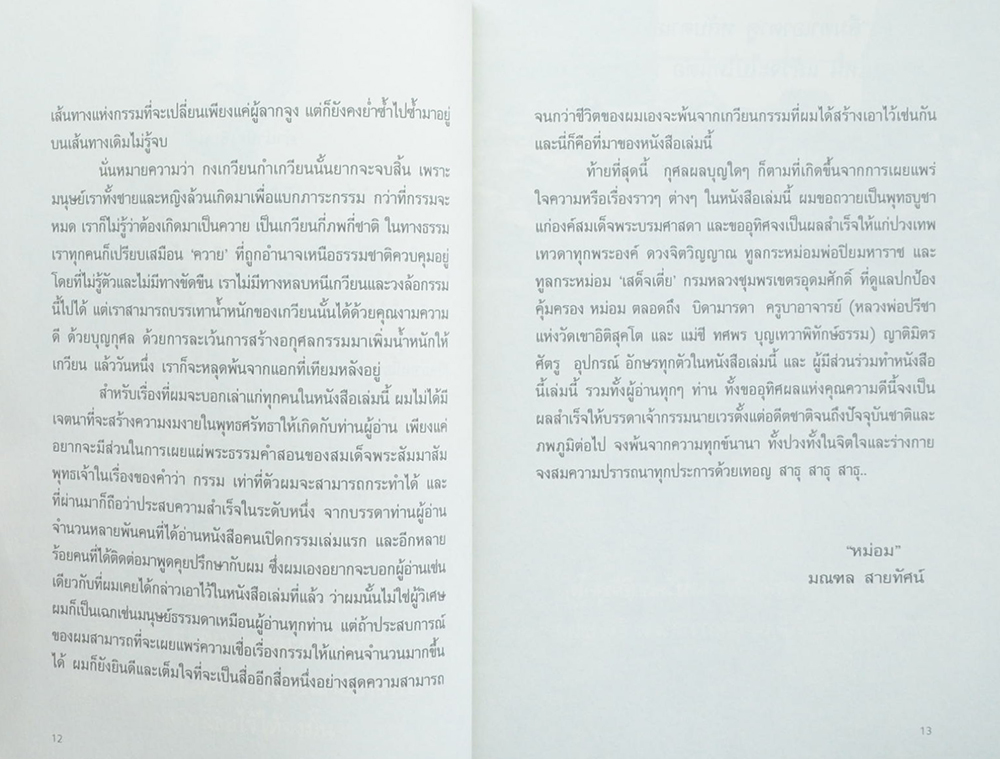 เส้นทางแห่งกรรมที่จะเปลี่ยนเพียงแค่ผู้ลากจูง แต่ก็ยังคงย่ำซ้ำไปซ้ำมาอยู่
บนเส้นทางเดิมไม่รู้จบ
นั่นหมายความว่า กงเกวียนกำเกวียนนั้นยากจะจบสิ้น เพราะ
มนุษย์เราทั้งชายและหญิงล้วนเกิดมาเพื่อแบกภาระกรรม กว่าที่กรรมจะ
หมด เราก็ไม่รู้ว่าต้องเกิดมาเป็นควาย เป็นเกวียนกี่ภพกี่ชาติ ในทางธรรม
เราทุกคนก็เปรียบเสมือน ‘ควาย’ ที่ถูกอำนาจเหนือธรรมชาติควบคุมอยู่
โดยที่ไม่รู้ตัวและไม่มีทางขัดขืน เราไม่มีทางหลบหนีเกวียนและวงล้อกรรม
นี้ไปได้ แต่เราสามารถบรรเทาน้ำหนักของเกวียนนั้นได้ด้วยคุณงามความ
ดี ด้วยบุญกุศล ด้วยการละเว้นการสร้างอกุศลกรรมมาเพิ่มน้ำหนักให้
เกวียน แล้ววันหนึ่ง เราก็จะหลุดพ้นจากแอกที่เทียมหลังอยู่
สำหรับเรื่องที่ผมจะบอกเล่าแก่ทุกคนในหนังสือเล่มนี้ ผมไม่ได้มี
เจตนาที่จะสร้างความงมงายในพุทธศรัทธาให้เกิดกับท่านผู้อ่าน เพียงแค่
อยากจะมีส่วนในการเผยแผ่พระธรรมคำสอนของสมเด็จพระสัมมาสัม
พุทธเจ้าในเรื่องของคำว่า กรรม เท่าที่ตัวผมจะสามารถกระทำได้ และ
ที่ผ่านมาก็ถือว่าประสบความสำเร็จในระดับหนึ่ง จากบรรดาท่านผู้อ่าน
จำนวนหลายพันคนที่ได้อ่านหนังสือคนเปิดกรรมเล่มแรก และอีกหลาย
ร้อยคนที่ได้ติดต่อมาพูดคุยปรึกษากับผม ซึ่งผมเองอยากจะบอกผู้อ่านเช่น
เดียวกับที่ผมเคยได้กล่าวเอาไว้ในหนังสือเล่มที่แล้ว ว่าผมนั้นไม่ใช่ผู้วิเศษ
ผมก็เป็นเฉกเช่นมนุษย์ธรรมดาเหมือนผู้อ่านทุกท่าน แต่ถ้าประสบการณ์
ของผมสามารถที่จะเผยแพร่ความเชื่อเรื่องกรรมให้แก่คนจำนวนมากขึ้น
ได้ ผมก็ยังยินดีและเต็มใจที่จะเป็นสื่ออีกสื่อหนึ่งอย่างสุดความสามารถ
12
จนกว่าชีวิตของผมเองจะพ้นจากเกวียนกรรมที่ผมได้สร้างเอาไว้เช่นกัน
และนี่ก็คือที่มาของหนังสือเล่มนี้
ท้ายที่สุดนี้ กุศลผลบุญใดๆ ก็ตามที่เกิดขึ้นจากการเผยแพร่
ใจความหรือเรื่องราวๆ ต่างๆ ในหนังสือเล่มนี้ ผมขอถวายเป็นพุทธบูชา
แก่องค์สมเด็จพระบรมศาสดา และขออุทิศจงเป็นผลสำเร็จให้แก่ปวงเทพ
เทวดาทุกพระองค์ ดวงจิตวิญญาณ ทูลกระหม่อมพ่อปิยมหาราช และ
ทูลกระหม่อม ‘เสด็จเตี่ย’ กรมหลวงชุมพรเขตรอุดมศักดิ์ ที่ดูแลปกป้อง
คุ้มครอง หม่อม ตลอดถึง บิดามารดา ครูบาอาจารย์ (หลวงพ่อปรีชา
แห่งวัดเขาอิติสุคโต และ แม่ชี ทศพร บุญเทวาพิทักษ์ธรรม) ญาติมิตร
ศัตรู อุปกรณ์ อักษรทุกตัวในหนังสือเล่มนี้ และ ผู้มีส่วนร่วมทำหนังสือ
นี้เล่มนี้ รวมทั้งผู้อ่านทุกๆ ท่าน ทั้งขออุทิศผลแห่งคุณความดีนี้จงเป็น
ผลสำเร็จให้บรรดาเจ้ากรรมนายเวรตั้งแต่อดีตชาติจนถึงปัจจุบันชาติและ
ภพภูมิต่อไป จงพ้นจากความทุกข์นานา ทั้งปวงทั้งในจิตใจและร่างกาย
จงสมความปรารถนาทุกประการด้วยเทอญ สาธุ สาธุ สาธุ..
“หม่อม”
มณฑล สายทัศน์
13